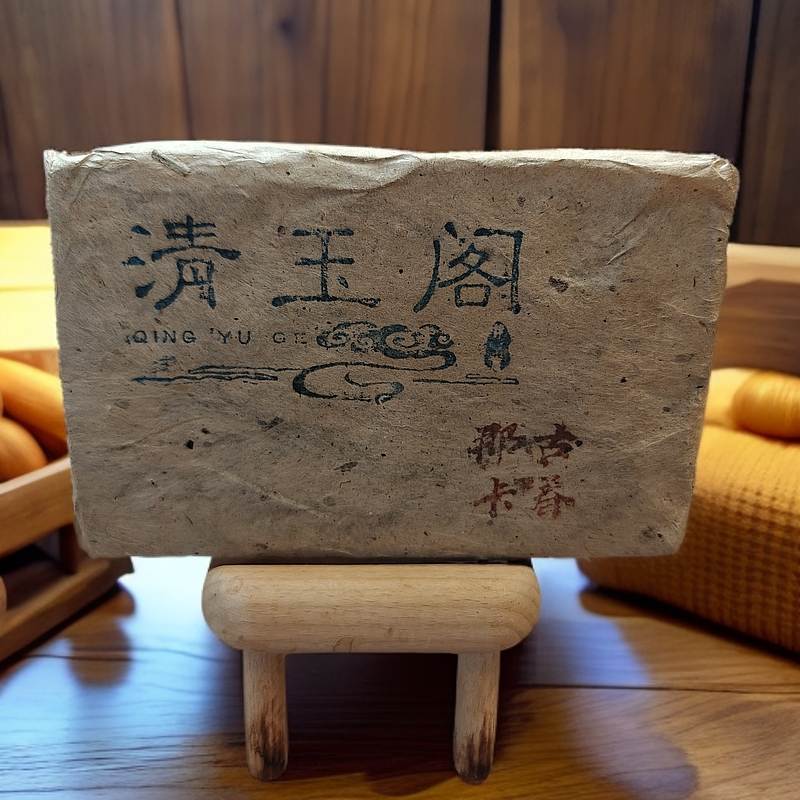 清玉阁
QING YU GE
古春
那卡